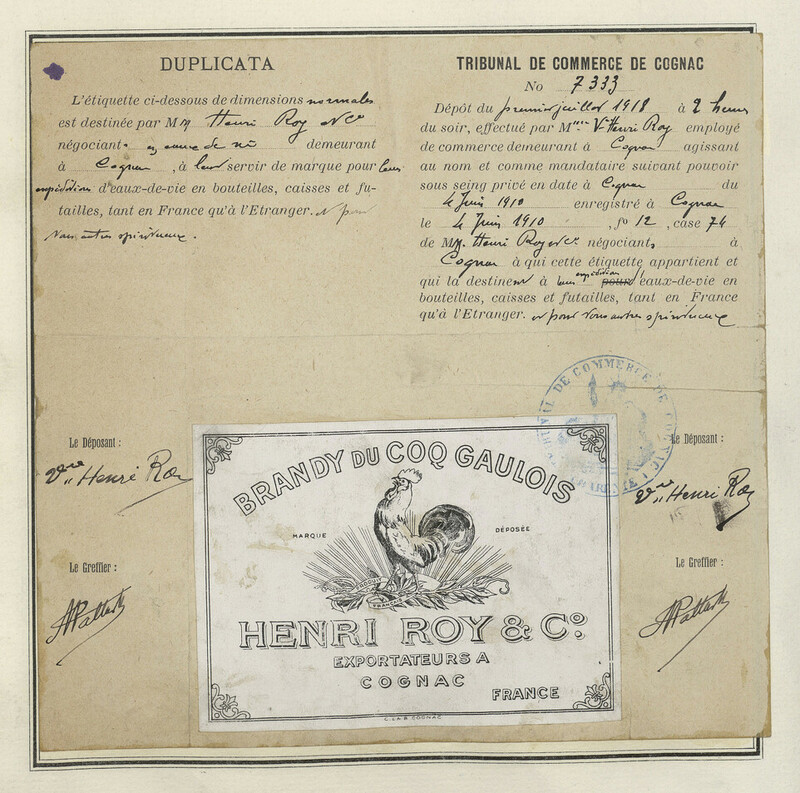 DUPLICATA
L'étiquette ci-dessous de dimensions normales
est destinée par MM Henri Roy & Co
négociants demeurant
à Cognac, à leur servir de marque pour leurs
expéditions d'eaux-de-vie en bouteilles, caisses et fu-
tailles, tant en France qu'à l'Etranger. et pour
tous autres spiritueux.
Le Déposant :
Vve Henri Roy
Le Greffier :
TRIBUNAL DE COMMERCE DE COGNAC
No 7333
Dépôt du premier juillet 1918 à 2 heures
du soir, effectué par Mme Vve Henri Roy employé
de commerce demeurant à Cognac agissant
au nom et comme mandataire suivant pouvoir
sous seing privé en date à Cognac du
4 Juin 1910 enregistré à Cognac
le 4 Juin 1910, fo 12, case 74
de MM. Henri Roy & Co négociants à
Cognac à qui cette étiquette appartient et
qui la destinent à leurs expéditions pour d'eaux-de-vie en
bouteilles, caisses et futailles, tant en France
qu'à l'Etranger. et pour tous autres spiritueux
TRIBUNAL DE COMMERCE DE COGNAC
CHARENTE
Le Déposant :
Vve Henri Roy
Le Greffier :
BRANDY DU COQ GAULOIS
MARQUE DÉPOSÉE
FRANCE
HENRI ROY & Co.
EXPORTATEURS A
COGNAC
FRANCE
COGNAC